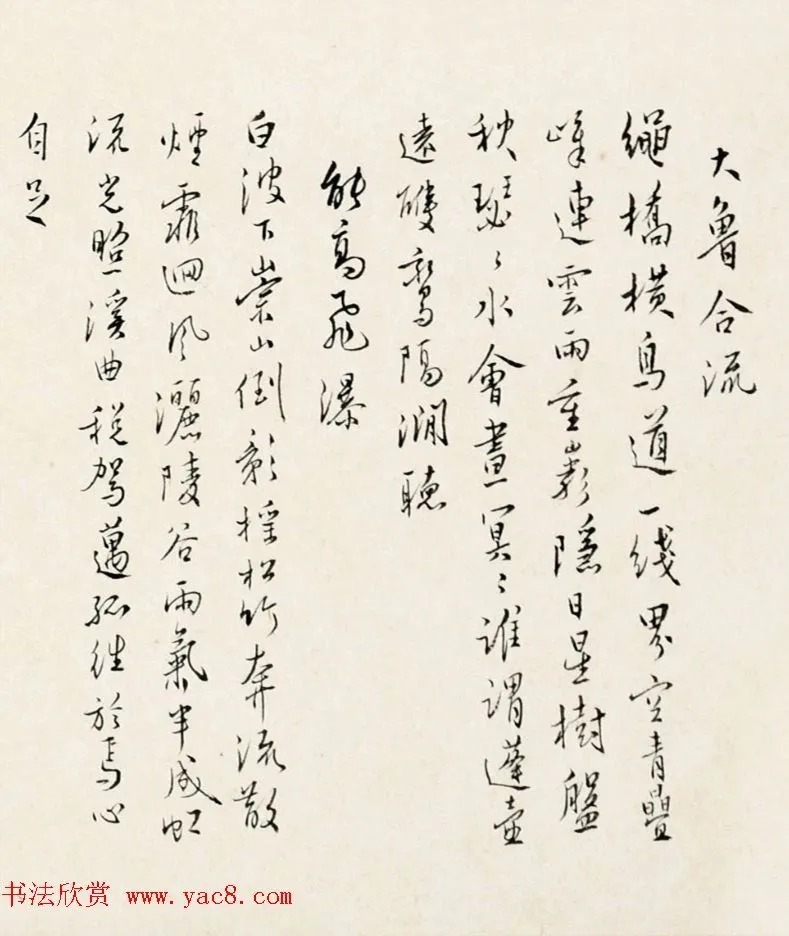 大魯合流
繩橋橫鳥道一綫界空青疊
嶂連雲雨重巖隱日星樹盤
秋瑟〻水會晝冥〻誰謂蓬壺
遠雙鸞隔澗聽
能高飛瀑
白波下崇山倒影搖松竹奔流散
煙霏迴風灑陵谷雨氣半成虹
流光照溪曲稅駕邁孤往於焉心
自足
书法欣赏 www.yac8.com